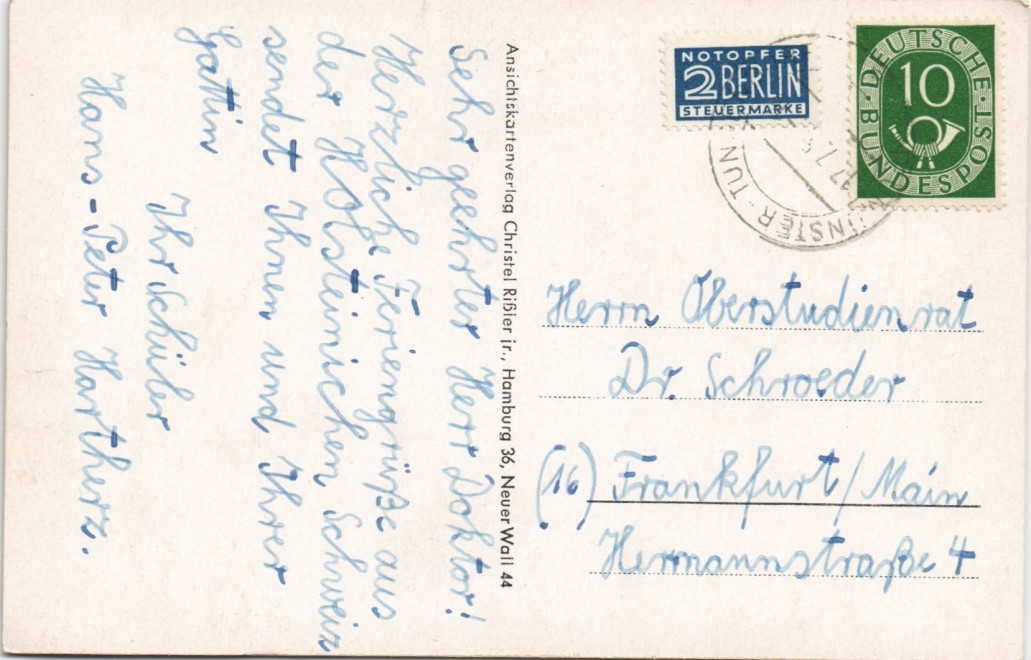 Sehr geehrter Herr Doktor!
Herzliche Feriengrüße aus
der Holsteinischen Schweiz
sendet Ihnen und Ihrer
Gattin
Ihr Schüler
Hans-Peter Hartherz.
Ansichtskartenverlag Christel Rißler jr., Hamburg 36, Neuer Wall 44
NOTOPFER
2 BERLIN
STEUERMARKE
DEUTSCHE BUNDESPOST
10
Herrn Oberstudienrat
Dr. Schroeder
(16) Frankfurt/Main
Hermannstraße 4